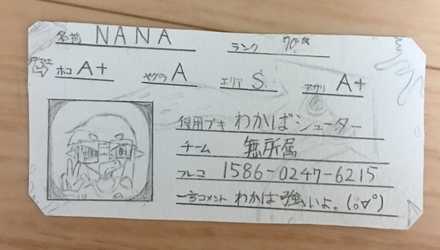 名前 NANA ランク 70
ホコ A+ ヤグラ A エリア S アサリ A+
使用ブキ わかばシューター
チーム 無所属
フレコ 1586-0247-6215
一言コメント わかば強いよ。(o∀°)